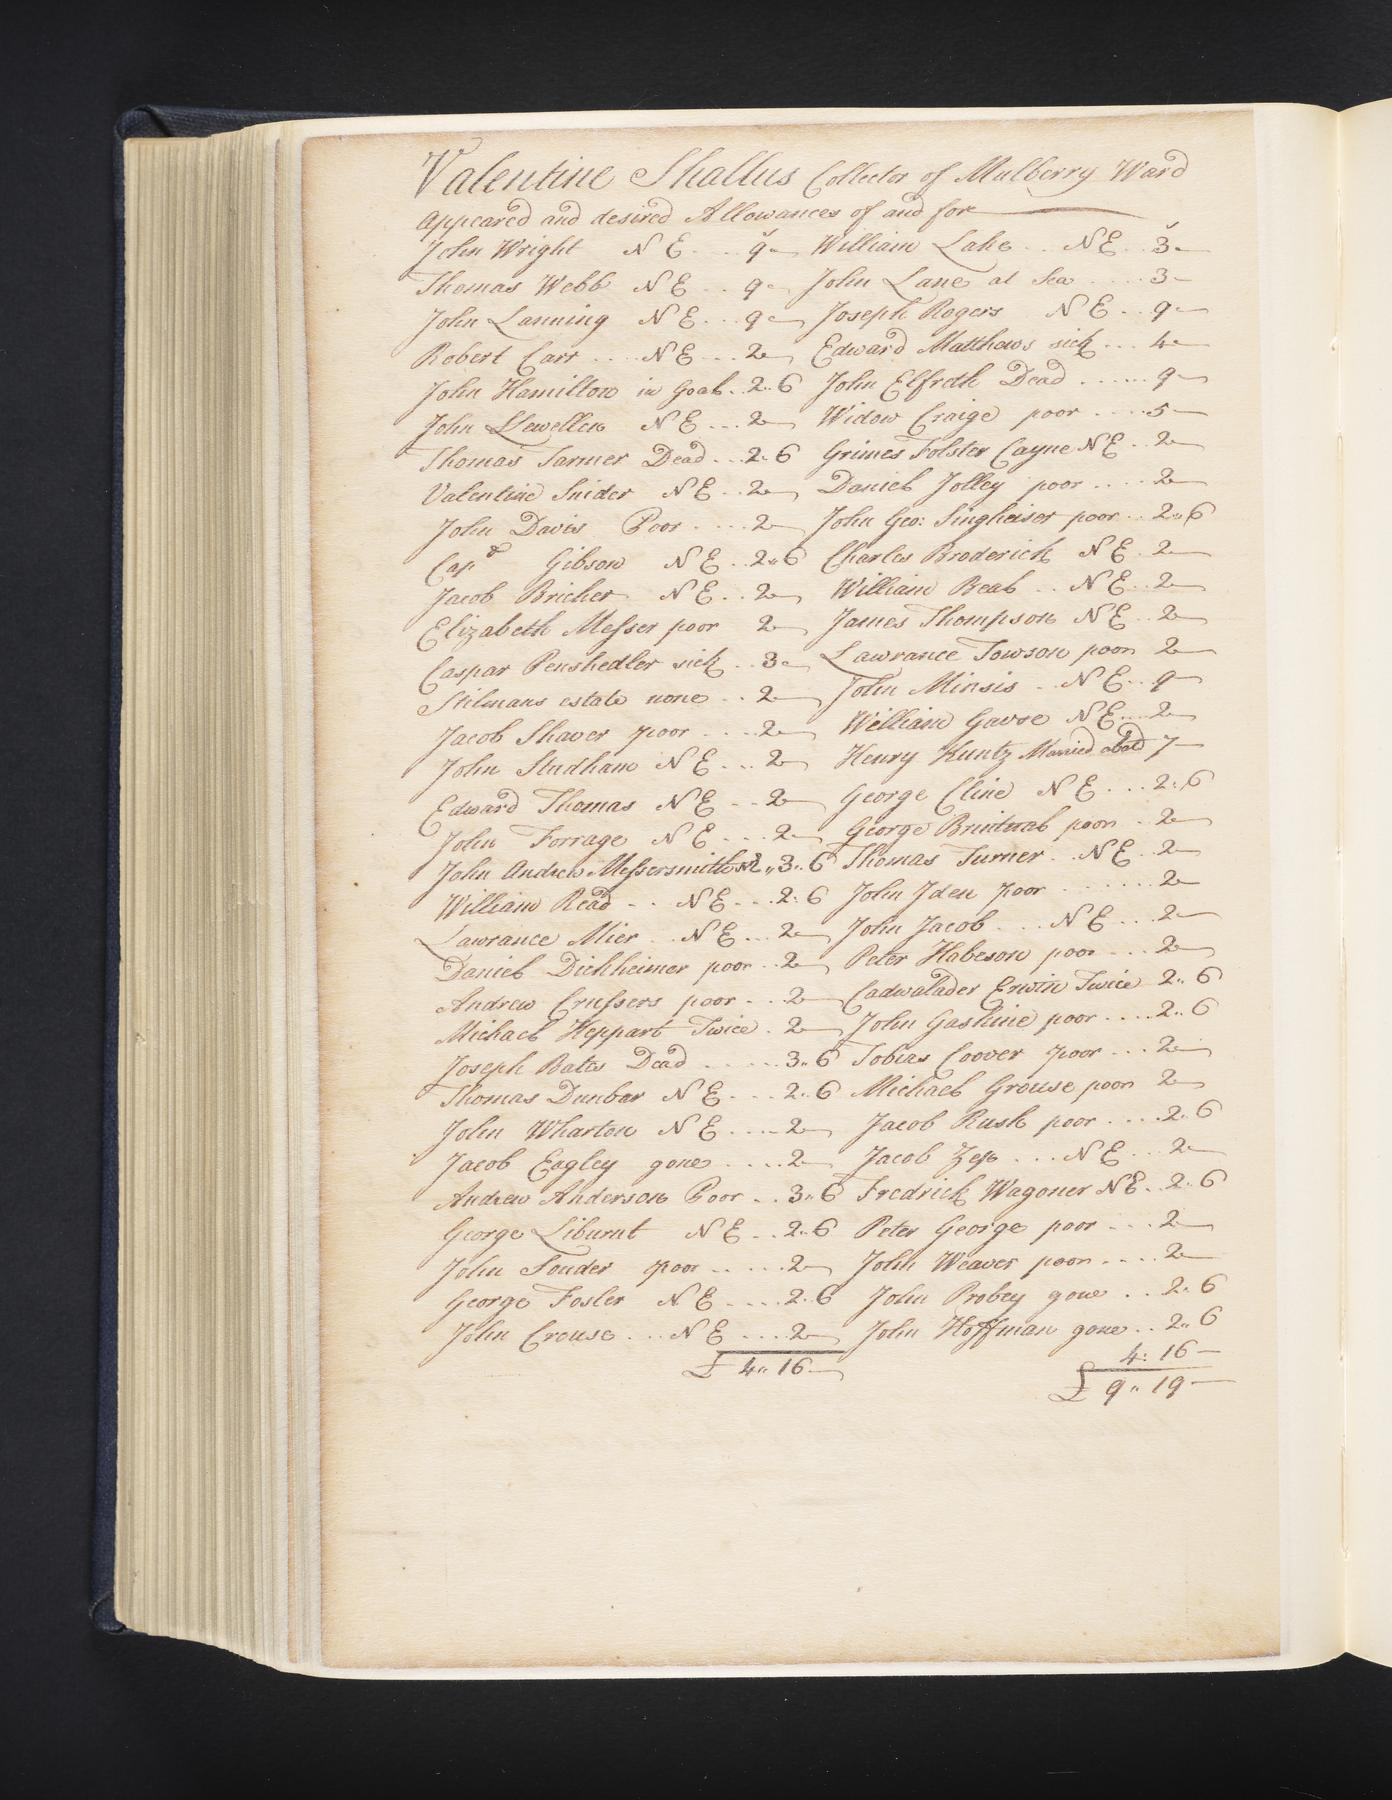 Valentine Shallus Collector of Mulberry Ward
Appeared and desired Allowances of and for
John Wright N E 9 William Lake N E 3
Thomas Webb N E 9 John Lane at Sea 3
John Lanning N E 9 Joseph Rogers N E 9
Robert Carr N E 2 Edward Matthews sick 4
John Hamilton in Goal 2.6 John Elfreth Dead 9
John Llewellen N E 2 Widow Craige poor 5
Thomas Tarmer Dead 2.6 Grimes Folster Cayne N E 2
Valentine Snider N E 2 Daniel Jolley poor 2
John Davis Poor 2 John Geo: Singheiser poor 2.6
Capt Gibson N E 2.6 Charles Broderick N E 2
Jacob Bricher N E 2 William Beab N E 2
Elizabeth Messer poor 2 James Thompson N E 2
Caspar Penshedler sick 3 Lawrance Towson poor 2
Stilmans estate none 2 John Minsis N E 9
Jacob Shaver poor 2 William Gavse N E 2
John Studham N E 2 Henry Kuntz Married 7
Edward Thomas N E 2 George Cline N E 2.6
John Forrage N E 2 George poor 2
John Andrew Messersmith NE 3.6 Thomas Turner N E 2
William Read N E 2.6 John Iden poor 2
Lawrance Mier N E 2 John Jacob N E 2
Daniel Dichheimer poor 2 Peter Habeson poor 2
Andrew Crussers poor 2 Cadwalader Erwin Twice 2.6
Michael Heppart Twice 2 John Gashine poor 2.6
Joseph Bates Dead 3.6 Tobias Coover poor 2
Thomas Dunbar N E 2.6 Michael Grouse poor 2
John Wharton N E 2 Jacob Rush poor 2.6
Jacob Eagley gone 2 Jacob N E 2
Andrew Anderson Poor 3.6 Fredrick Wagoner N E 2.6
George Liburnt N E 2.6 Peter George poor 2
John Souder poor 2 John Weaver poor 2
George Foster N E 2.6 John Probey gone 2.6
John Crouse N E 2 John Hoffman gone 2.6
£ 4.16 4:16
£ 9.19